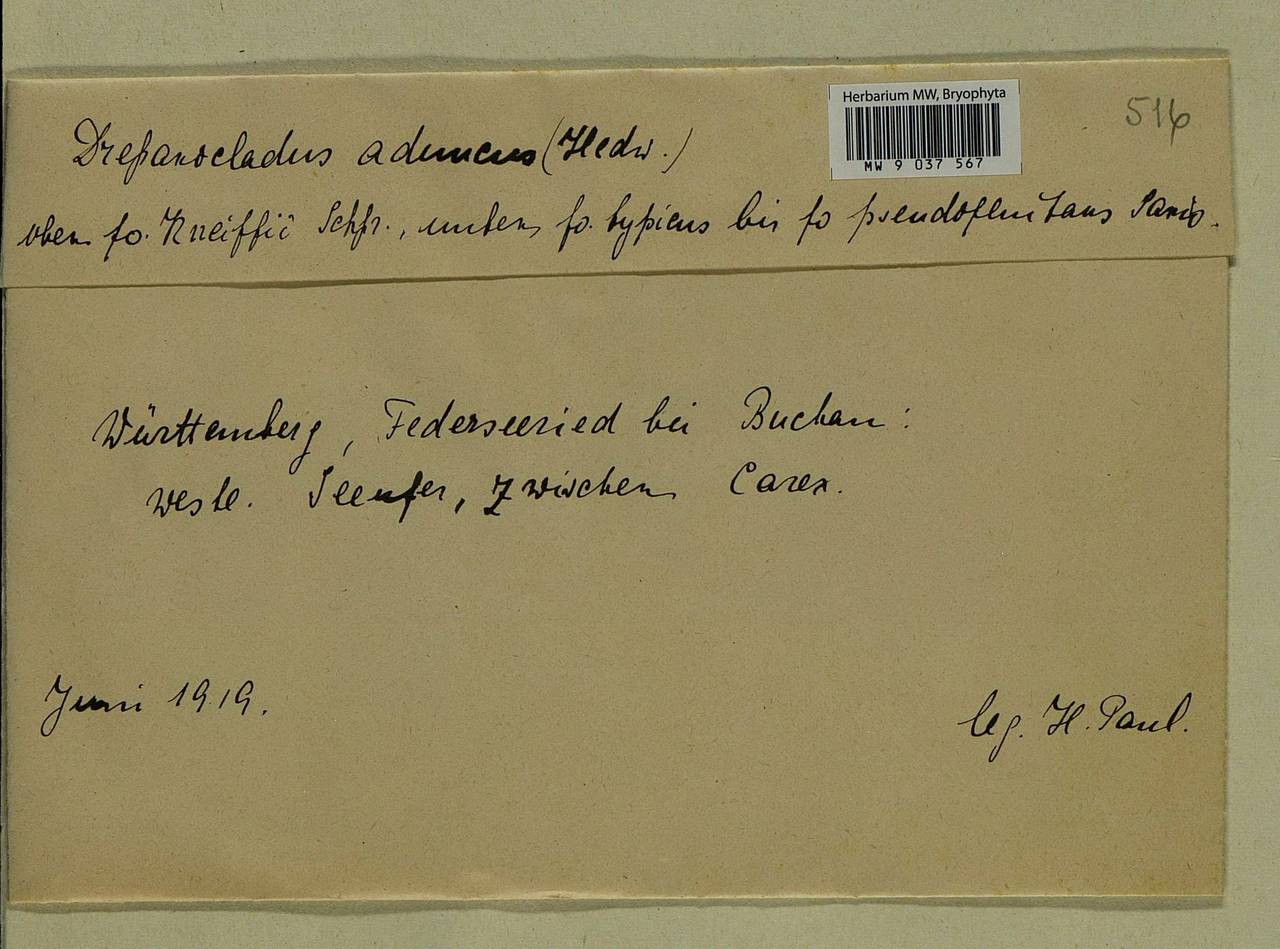 Herbarium MW, Bryophyta
MW 9 037 567
516
Drepanocladus aduncus (Hedw.)
oben fo. Kneiffii Schpr., unten fo. typicus bis fo pseudofluitans Sanio.
Württemberg, Federseeried bei Buchau:
westl. Seeufer, zwischen Carex.
Juni 1919.
leg. H. Paul.